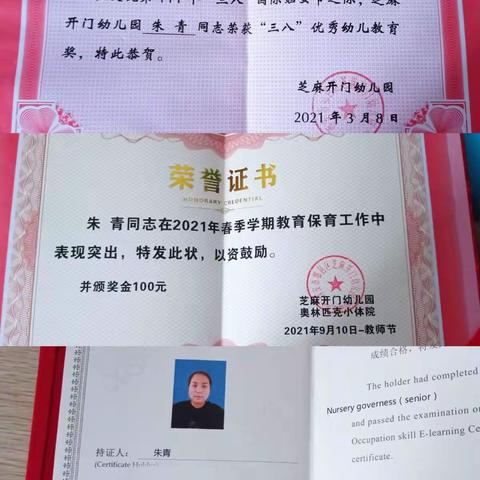 开门幼儿园 朱 青 同志荣获“三八”优秀幼儿教育
奖，特此恭贺。
芝麻开门幼儿园
2021年3月8日
荣誉证书
HONORARY CREDENTIAL
朱 青同志在2021年春季学期教育保育工作中
表现突出，特发此状，以资鼓励。
并颁奖金100元
芝麻开门幼儿园
奥林匹克小体院
2021年9月10日-教师节
成绩合格，特发
The holder had completed
Nursery governess（senior）
and passed the examination on
Occupation skill E-learning Ce
certificate.
持证人： 朱青
(Certificate Holder)